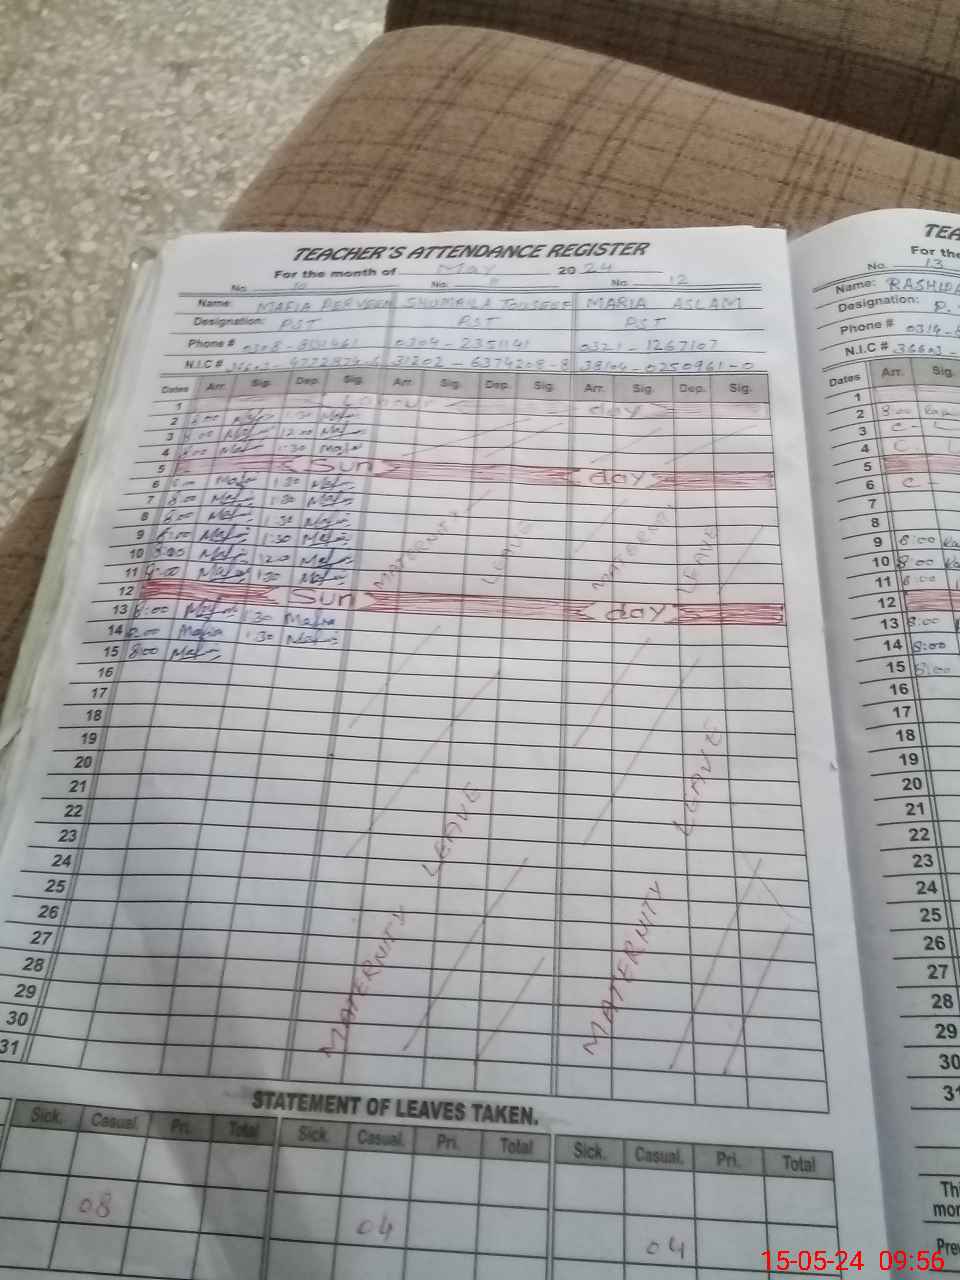 TEACHER'S ATTENDANCE REGISTER
For the month of May 2024
No. 10 No. 11 No. 12
Name: MAFIA PERVEEN SHUMAILA MARIA ASLAM
Designation: PST PST PST
Phone # 0304-2351141 0321-1267107
N.I.C # 31202-6374208-8 38104-0250961-0
Dates Arr. Sig. Dep. Sig. Arr. Sig. Dep. Sig. Arr. Sig. Dep. Sig.
1 Labour day
2 8:00 Mafia 1:30 Mafia
3 8:00 Mafia 12:00 Mafia
4 8:00 Mafia 1:30 Mafia
5 Sun day
6 8:00 Mafia 1:30 Mafia
7 8:00 Mafia 1:30 Mafia
8 8:00 Mafia 1:30 Mafia
9 8:00 Mafia 1:30 Mafia
10 8:00 Mafia 12:00 Mafia
11 8:00 Mafia 1:30 Mafia
MATERNITY LEAVE MATERNITY LEAVE
12 Sun day
13 8:00 Mafia 1:30 Mafia
14 8:00 Mafia 1:30 Mafia
15 8:00 Mafia
16
17
18
19
20
21
22
23
24
25
26
27
28
29
30
31
MATERNITY LEAVE MATERNITY LEAVE
STATEMENT OF LEAVES TAKEN.
Sick. Casual. Pri. Total Sick. Casual. Pri. Total Sick. Casual. Pri. Total
08 04 04
For the
No. 13
Name:
Designation:
Phone #
N.I.C #
Dates Arr. Sig.
1
2 8:00
3 C- L
4 C. L
5
6 C-
7
8
9 8:00
10 8:00
11 8:00
12
13 8:00
14 8:00
15 8:00
16
17
18
19
20
21
22
23
24
25
26
27
28
29
30
31
15-05-24 09:56